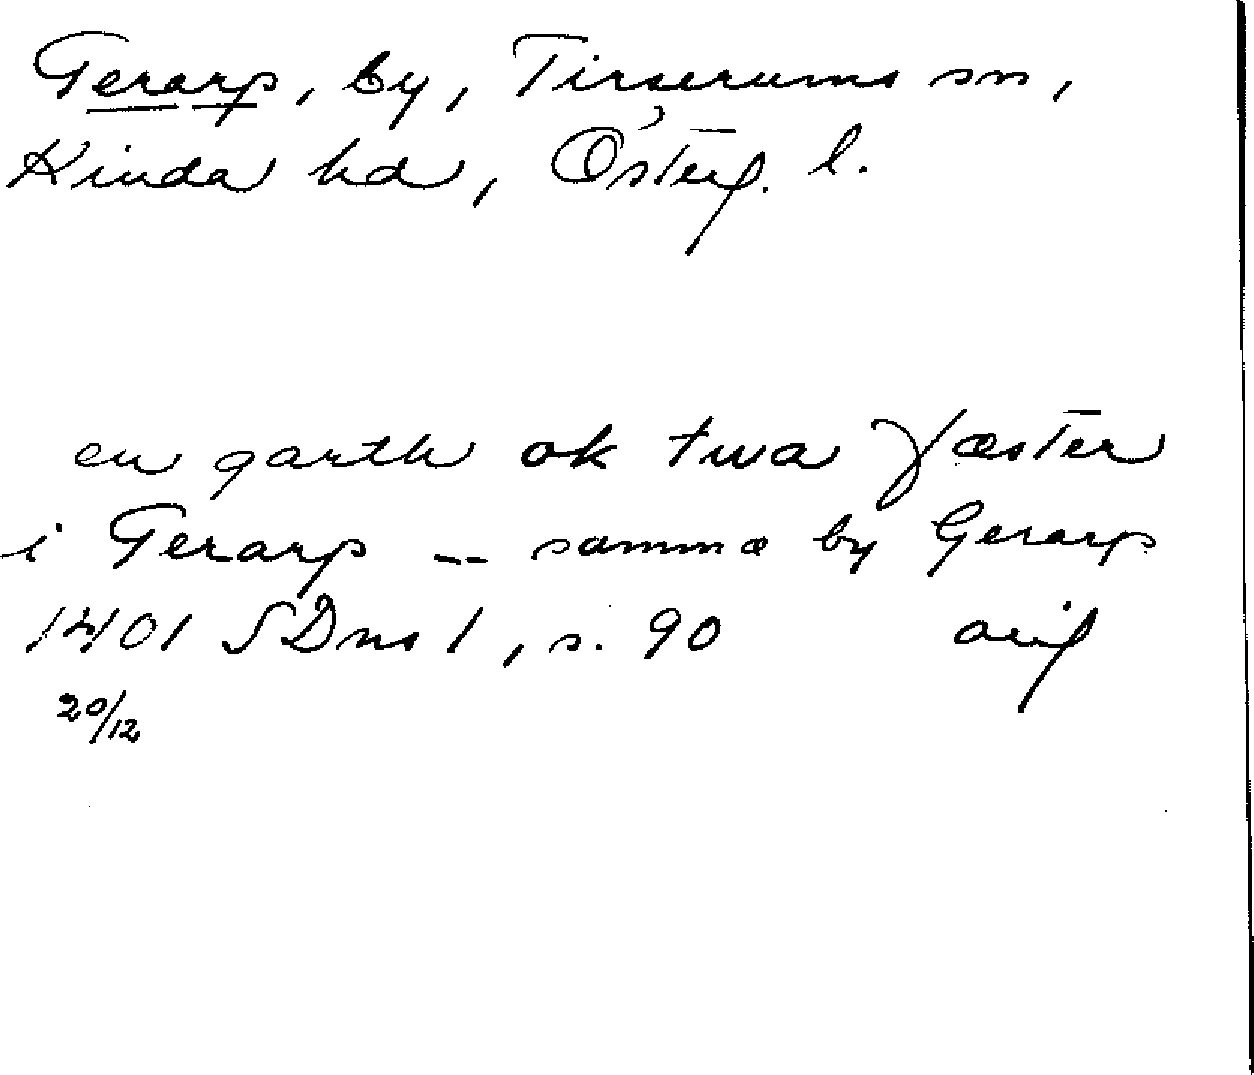 Gerarp, by, Tirserums sn,
Kinda hd, Österg. l.
en garth ok twa fæster
i Gerarp -- sammæ by Gerarp
1401 SDns 1, s. 90 avig
20/12